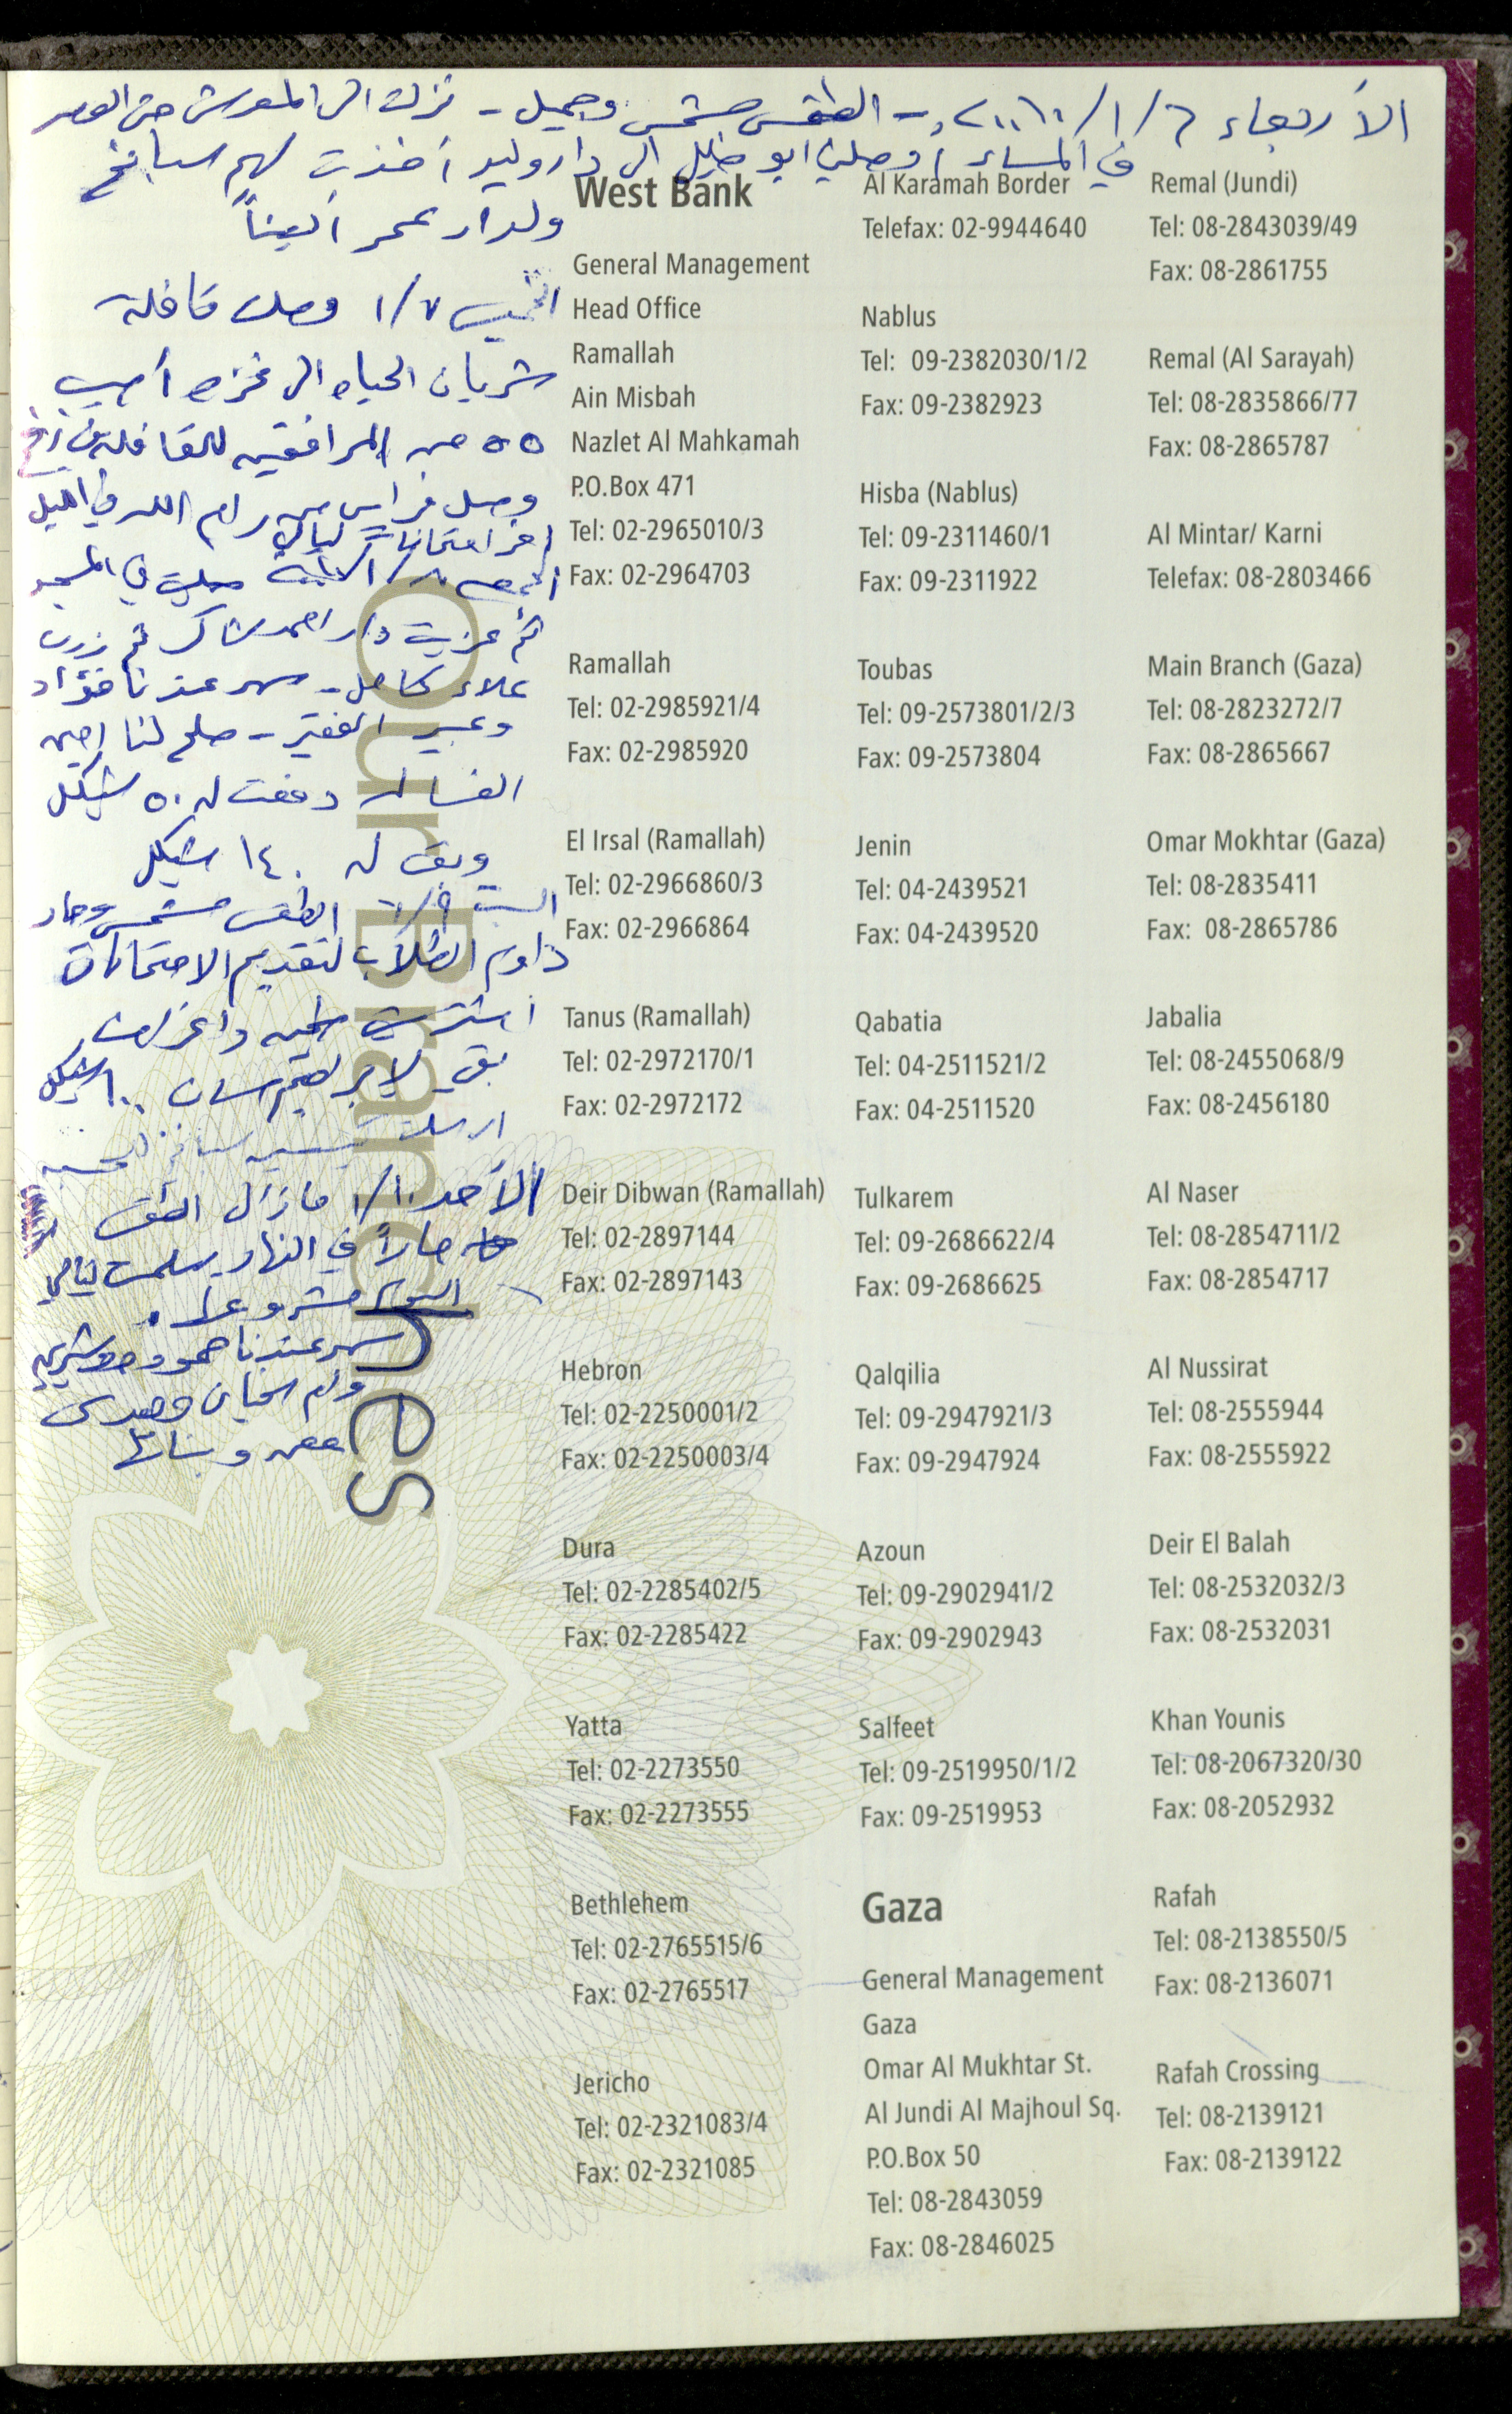 الأربعاء ٦/١/٢٠١٠م - الطقس مشمس وجميل - نزلت الى المعرش حتى العصر
في المساء أوصلني ابو خليل الى دار وليد أخذت لهم سبانخ
ولدار عمر أيضاً
الخميس ٧/١ وصلت قافلة
شريان الحياه الى غزه أصيب
٥٥ من المرافقين للقافلة في
وصل فراس من رام الله في الليل
اخر امتحانات ليالي
الجمعه ٨/١ صليت في المسجد
ثم عزيت دار احمد شاكر ثم زرت
علاء كامل - سهر عندنا فؤاد
وعبير الفقير - صلح لنا امين
الغساله دفعت له ٥٠ شيكل
وبقى له ١٤٠ شيكل
السبت ٩/١ الطقس مشمس وحار
داوم الطلاب لتقديم الامتحانات
اشتريت
بقى لابراهيم ١٠٠ شيكل
ارسلت سبانخ
الأحد ١٠/١ مازال الطقس
حاراً في النهار سلمت ليالي
اليوم مشروعها
سهر عندنا
وام
وبناتها
Our Branches
West Bank
General Management
Head Office
Ramallah
Ain Misbah
Nazlet Al Mahkamah
P.O.Box 471
Tel: 02-2965010/3
Fax: 02-2964703
Ramallah
Tel: 02-2985921/4
Fax: 02-2985920
El Irsal (Ramallah)
Tel: 02-2966860/3
Fax: 02-2966864
Tanus (Ramallah)
Tel: 02-2972170/1
Fax: 02-2972172
Deir Dibwan (Ramallah)
Tel: 02-2897144
Fax: 02-2897143
Hebron
Tel: 02-2250001/2
Fax: 02-2250003/4
Dura
Tel: 02-2285402/5
Fax: 02-2285422
Yatta
Tel: 02-2273550
Fax: 02-2273555
Bethlehem
Tel: 02-2765515/6
Fax: 02-2765517
Jericho
Tel: 02-2321083/4
Fax: 02-2321085
Al Karamah Border
Telefax: 02-9944640
Nablus
Tel: 09-2382030/1/2
Fax: 09-2382923
Hisba (Nablus)
Tel: 09-2311460/1
Fax: 09-2311922
Toubas
Tel: 09-2573801/2/3
Fax: 09-2573804
Jenin
Tel: 04-2439521
Fax: 04-2439520
Qabatia
Tel: 04-2511521/2
Fax: 04-2511520
Tulkarem
Tel: 09-2686622/4
Fax: 09-2686625
Qalqilia
Tel: 09-2947921/3
Fax: 09-2947924
Azoun
Tel: 09-2902941/2
Fax: 09-2902943
Salfeet
Tel: 09-2519950/1/2
Fax: 09-2519953
Gaza
General Management
Gaza
Omar Al Mukhtar St.
Al Jundi Al Majhoul Sq.
P.O.Box 50
Tel: 08-2843059
Fax: 08-2846025
Remal (Jundi)
Tel: 08-2843039/49
Fax: 08-2861755
Remal (Al Sarayah)
Tel: 08-2835866/77
Fax: 08-2865787
Al Mintar/ Karni
Telefax: 08-2803466
Main Branch (Gaza)
Tel: 08-2823272/7
Fax: 08-2865667
Omar Mokhtar (Gaza)
Tel: 08-2835411
Fax: 08-2865786
Jabalia
Tel: 08-2455068/9
Fax: 08-2456180
Al Naser
Tel: 08-2854711/2
Fax: 08-2854717
Al Nussirat
Tel: 08-2555944
Fax: 08-2555922
Deir El Balah
Tel: 08-2532032/3
Fax: 08-2532031
Khan Younis
Tel: 08-2067320/30
Fax: 08-2052932
Rafah
Tel: 08-2138550/5
Fax: 08-2136071
Rafah Crossing
Tel: 08-2139121
Fax: 08-2139122